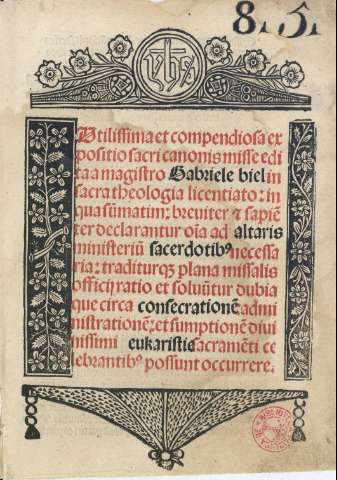 8.15.
yhs
Utilissima et compendiosa ex
positio sacri canonis misse edi
ta a magistro Gabriele biel in
sacra theologia licentiato: in
qua sūmatim: breuiter ⁊ sapiē
ter declarantur oīa ad altaris
ministeriū sacerdotibꝰ necessa
ria: traditurqꝫ plana missalis
officij ratio et soluūtur dubia
que circa consecrationē admi
nistrationē: et sumptionē diui
nissimi eukaristie sacramēti ce
lebrantibꝰ possunt occurrere.